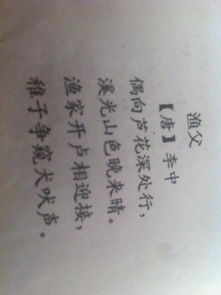 渔父
【唐】李中
偶向芦花深处行，
溪光山色晚来晴。
渔家开户相迎接，
稚子争窥犬吠声。